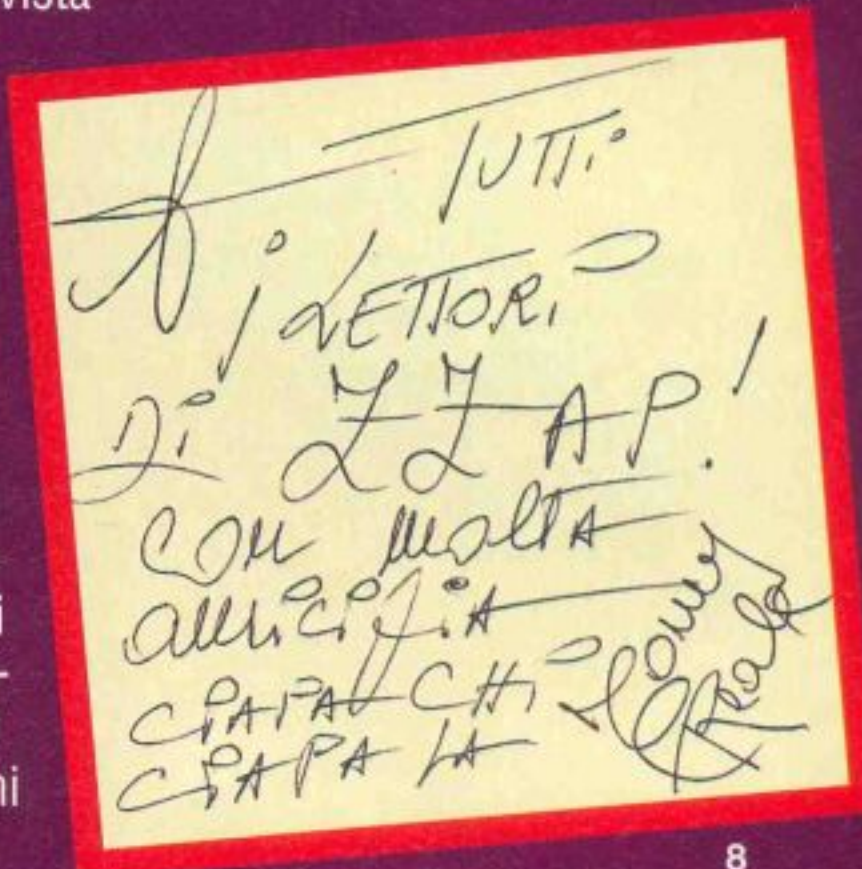 vista
A TUTTi
i LETTORi
Di ZZAP!
con molta
amicizia
CiAPA CHi
CiAPA LA
i
-
ni
8